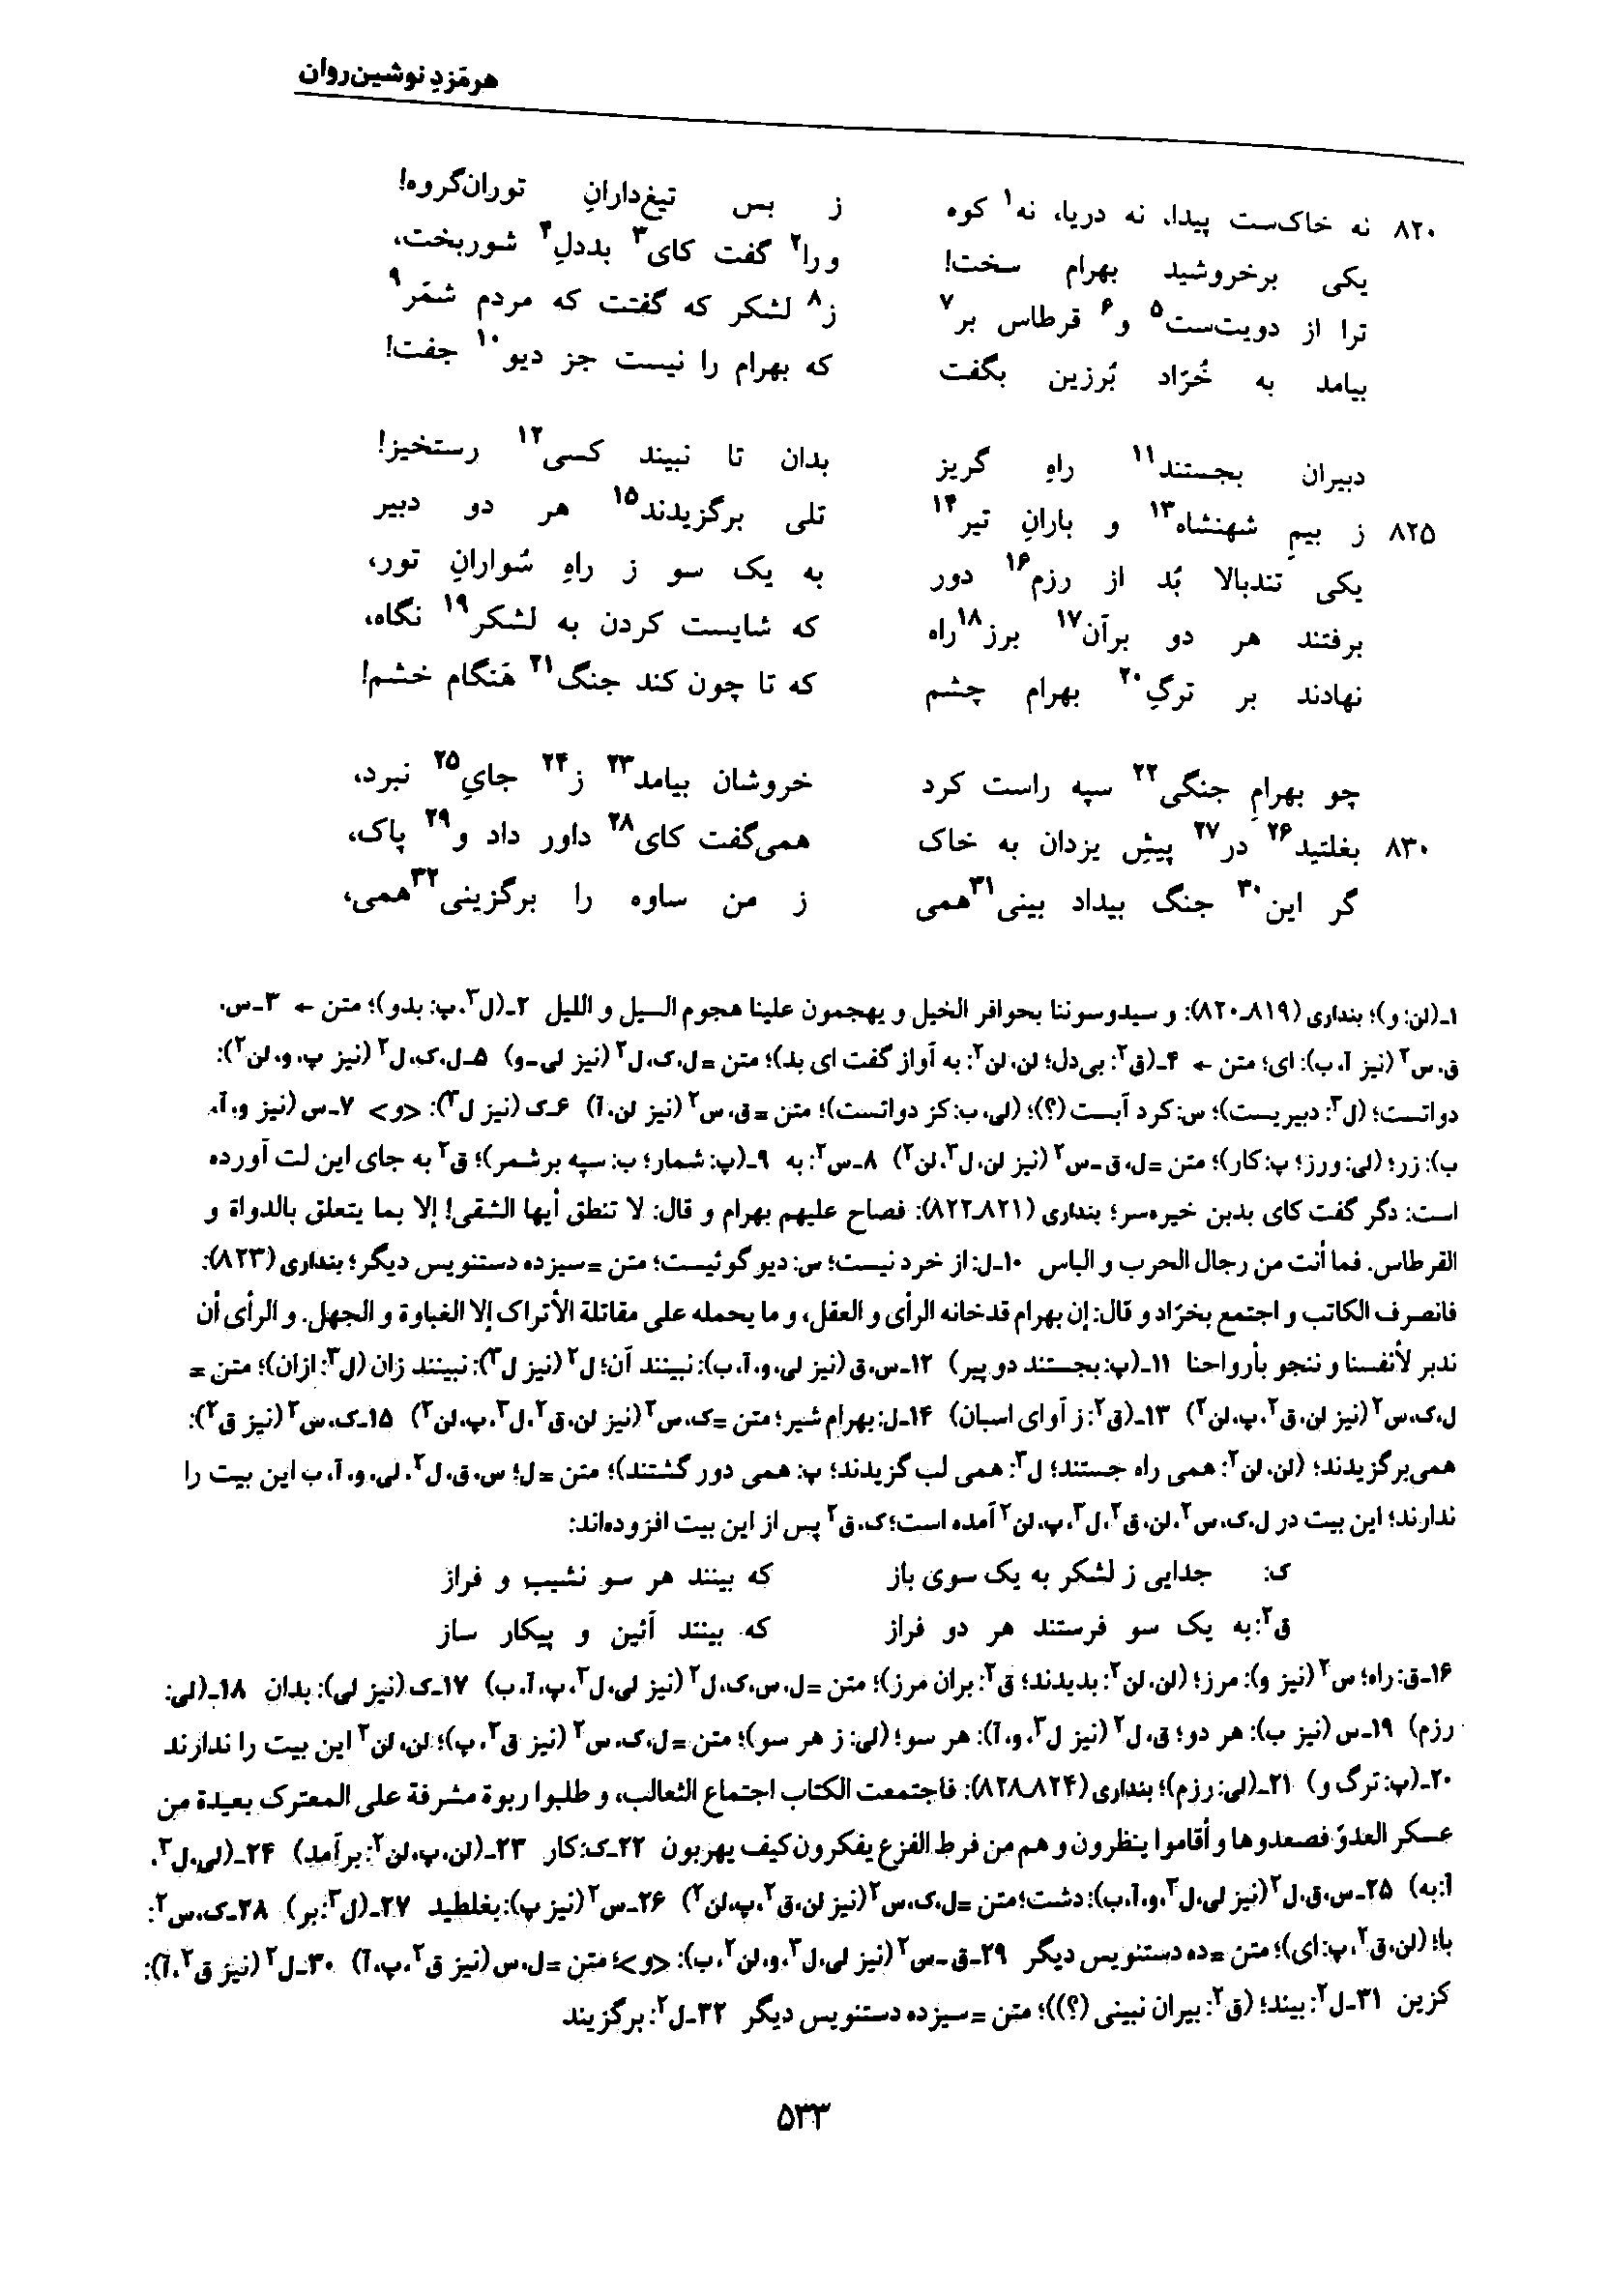 هرمَزدِ نوشین‌روان
۸۲۰ نه خاک‌ست پیدا، نه دریا، نه۱ کوه ز بس تیغ‌دارانِ توران‌گروه!
یکی برخروشید بهرام سخت! ورا۲ گفت کای۳ بددلِ۴ شوربخت،
ترا از دویت‌ست۵ و۶ قرطاس بر۷ ز۸ لشکر که گفتت که مردم شمَر۹
بیامد به خُرّاد بُرزین بگفت که بهرام را نیست جز دیو۱۰ جفت!
دبیران بجستند۱۱ راهِ گریز بدان تا نبیند کسی۱۲ رستخیز!
۸۲۵ ز بیمِ شهنشاه۱۳ و بارانِ تیر۱۴ تلی برگزیدند۱۵ هر دو دبیر
یکی تندبالا بُد از رزم۱۶ دور به یک سو ز راهِ سُوارانِ تور،
برفتند هر دو برآن۱۷ برز۱۸راه که شایست کردن به لشکر۱۹ نگاه،
نهادند بر ترگِ۲۰ بهرام چشم که تا چون کند جنگ۲۱ هَنگام خشم!
چو بهرامِ جنگی۲۲ سپه راست کرد خروشان بیامد۲۳ ز۲۴ جایِ۲۵ نبرد،
۸۳۰ بغلتید۲۶ در۲۷ پیشِ یزدان به خاک همی‌گفت کای۲۸ داور داد و۲۹ پاک،
گر این۳۰ جنگ بیداد بینی۳۱همی ز من ساوه را برگزینی۳۲همی،
۱ـ(لن: و)؛ بنداری (۸۱۹ـ۸۲۰): و سیدوسوننا بحوافر الخیل و یهجمون علینا هجوم السیل و اللیل ۲ـ(ل۳، پ: بدو)؛ متن ← ۳ـس،
ق، س۲ (نیز آ، ب): ای؛ متن ← ۴ـ(ق۲: بی‌دل؛ لن، لن۲: به آواز گفت ای بد)؛ متن = ل، ک، ل۲ (نیز لی ـ و) ۵ـل، ک، ل۲ (نیز پ، و، لن۲):
دواتست؛ (ل۳: دبیریست)؛ س: کرد آبست (؟)؛ (لی، ب: کز دواتست)؛ متن = ق، س۲ (نیز لن، آ) ۶ـک (نیز ل۳): <و> ۷ـس (نیز و، آ،
ب): زر؛ (لی: ورز؛ پ: کار)؛ متن = ل، ق ـ س۲ (نیز لن، ل۳، لن۲) ۸ـس۲: به ۹ـ(پ: شمار؛ ب: سپه برشمر)؛ ق۲ به جای این لت آورده
است: دگر گفت کای بدبن خیره‌سر؛ بنداری (۸۲۱ـ۸۲۲): فصاح علیهم بهرام و قال: لا تنطق أیها الشقی! إلا بما یتعلق بالدواة و
القرطاس. فما أنت من رجال الحرب و الباس ۱۰ـل: از خرد نیست؛ س: دیو گوئیست؛ متن = سیزده دستنویس دیگر؛ بنداری (۸۲۳):
فانصرف الکاتب و اجتمع بخرّاد و قال: إن بهرام قدخانه الرأی و العقل، و ما یحمله علی مقاتلة الأتراک إلا الغباوة و الجهل. و الرأی أن
ندبر لأنفسنا و ننجو بأرواحنا ۱۱ـ(پ: بجستند دو پیر) ۱۲ـس، ق (نیز لی، و، آ، ب): نبینند آن؛ ل۲ (نیز ل۳): نبینند زان (ل۳: ازان)؛ متن =
ل، ک، س۲ (نیز لن، ق۲، پ، لن۲) ۱۳ـ(ق۲: ز آوای اسبان) ۱۴ـل: بهرام شیر؛ متن = ک، س۲ (نیز لن، ق۲، ل۳، پ، لن۲) ۱۵ـک، س۲ (نیز ق۲):
همی‌برگزیدند؛ (لن، لن۲: همی راه جستند؛ ل۳: همی لب گزیدند؛ پ: همی دور گشتند)؛ متن = ل؛ س، ق، ل۲، لی، و، آ، ب این بیت را
ندارند؛ این بیت در ل، ک، س۲، لن، ق۲، ل۳، پ، لن۲ آمده است؛ ک، ق۲ پس از این بیت افزوده‌اند:
ک: جدایی ز لشکر به یک سوی باز که بینند هر سو نشیب و فراز
ق۲: به یک سو فرستند هر دو فراز که بینند آئین و پیکار ساز
۱۶ـق: راه؛ س۲ (نیز و): مرز؛ (لن، لن۲: بدیدند؛ ق۲: بران مرز)؛ متن = ل، س، ک، ل۲ (نیز لی، ل۳، پ، آ، ب) ۱۷ـک (نیز لی): بدان ۱۸ـ(لی:
رزم) ۱۹ـس (نیز ب): هر دو؛ ق، ل۲ (نیز ل۳، و، آ): هر سو؛ (لی: ز هر سو)؛ متن = ل، ک، س۲ (نیز ق۲، پ)؛ لن، لن۲ این بیت را ندارند
۲۰ـ(پ: ترگ و) ۲۱ـ(لی: رزم)؛ بنداری (۸۲۴ـ۸۲۸): فاجتمعت الکتاب اجتماع الثعالب، و طلبوا ربوة مشرفة علی المعترک بعیدة من
عسکر العدوّ فصعدوها و أقاموا ینظرون و هم من فرط الفزع یفکرون کیف یهربون ۲۲ـک: کار ۲۳ـ(لن، پ، لن۲: برآمد) ۲۴ـ(لی، ل۳،
آ: به) ۲۵ـس، ق، ل۲ (نیز لی، ل۳، و، آ، ب): دشت؛ متن = ل، ک، س۲ (نیز لن، ق۲، پ، لن۲) ۲۶ـس۲ (نیز پ): بغلطید ۲۷ـ(ل۳: بر) ۲۸ـک، س۲:
با؛ (لن، ق۲، پ: ای)؛ متن = ده دستنویس دیگر ۲۹ـق ـ س۲ (نیز لی، ل۳، و، لن۲، ب): <و>؛ متن = ل، س (نیز ق۲، پ، آ) ۳۰ـل۲ (نیز ق۲، آ):
کزین ۳۱ـل۲: بیند؛ (ق۲: بیران نبینی (؟))؛ متن = سیزده دستنویس دیگر ۳۲ـل۲: برگزیند
۵۳۳